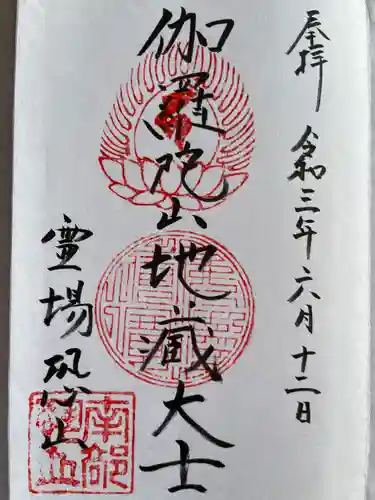 奉拝
令和三年六月十二日
伽羅陀山地蔵大士
霊場恐山